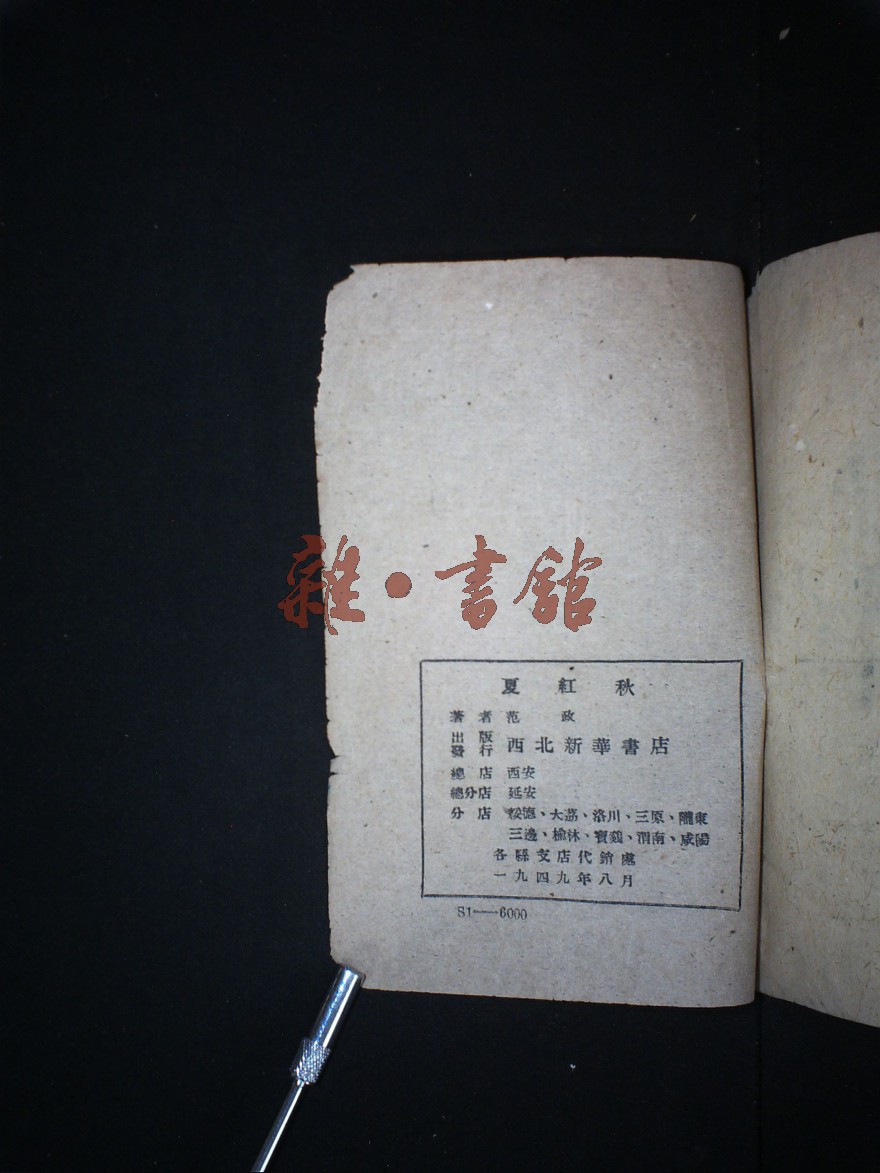 雜·書館
夏紅秋
著者 范政
出版
發行 西北新華書店
總店 西安
總分店 延安
分店 綏德、大荔、洛川、三原、隴東
三邊、榆林、寶鷄、渭南、咸陽
各縣支店代銷處
一九四九年八月
S1——6000